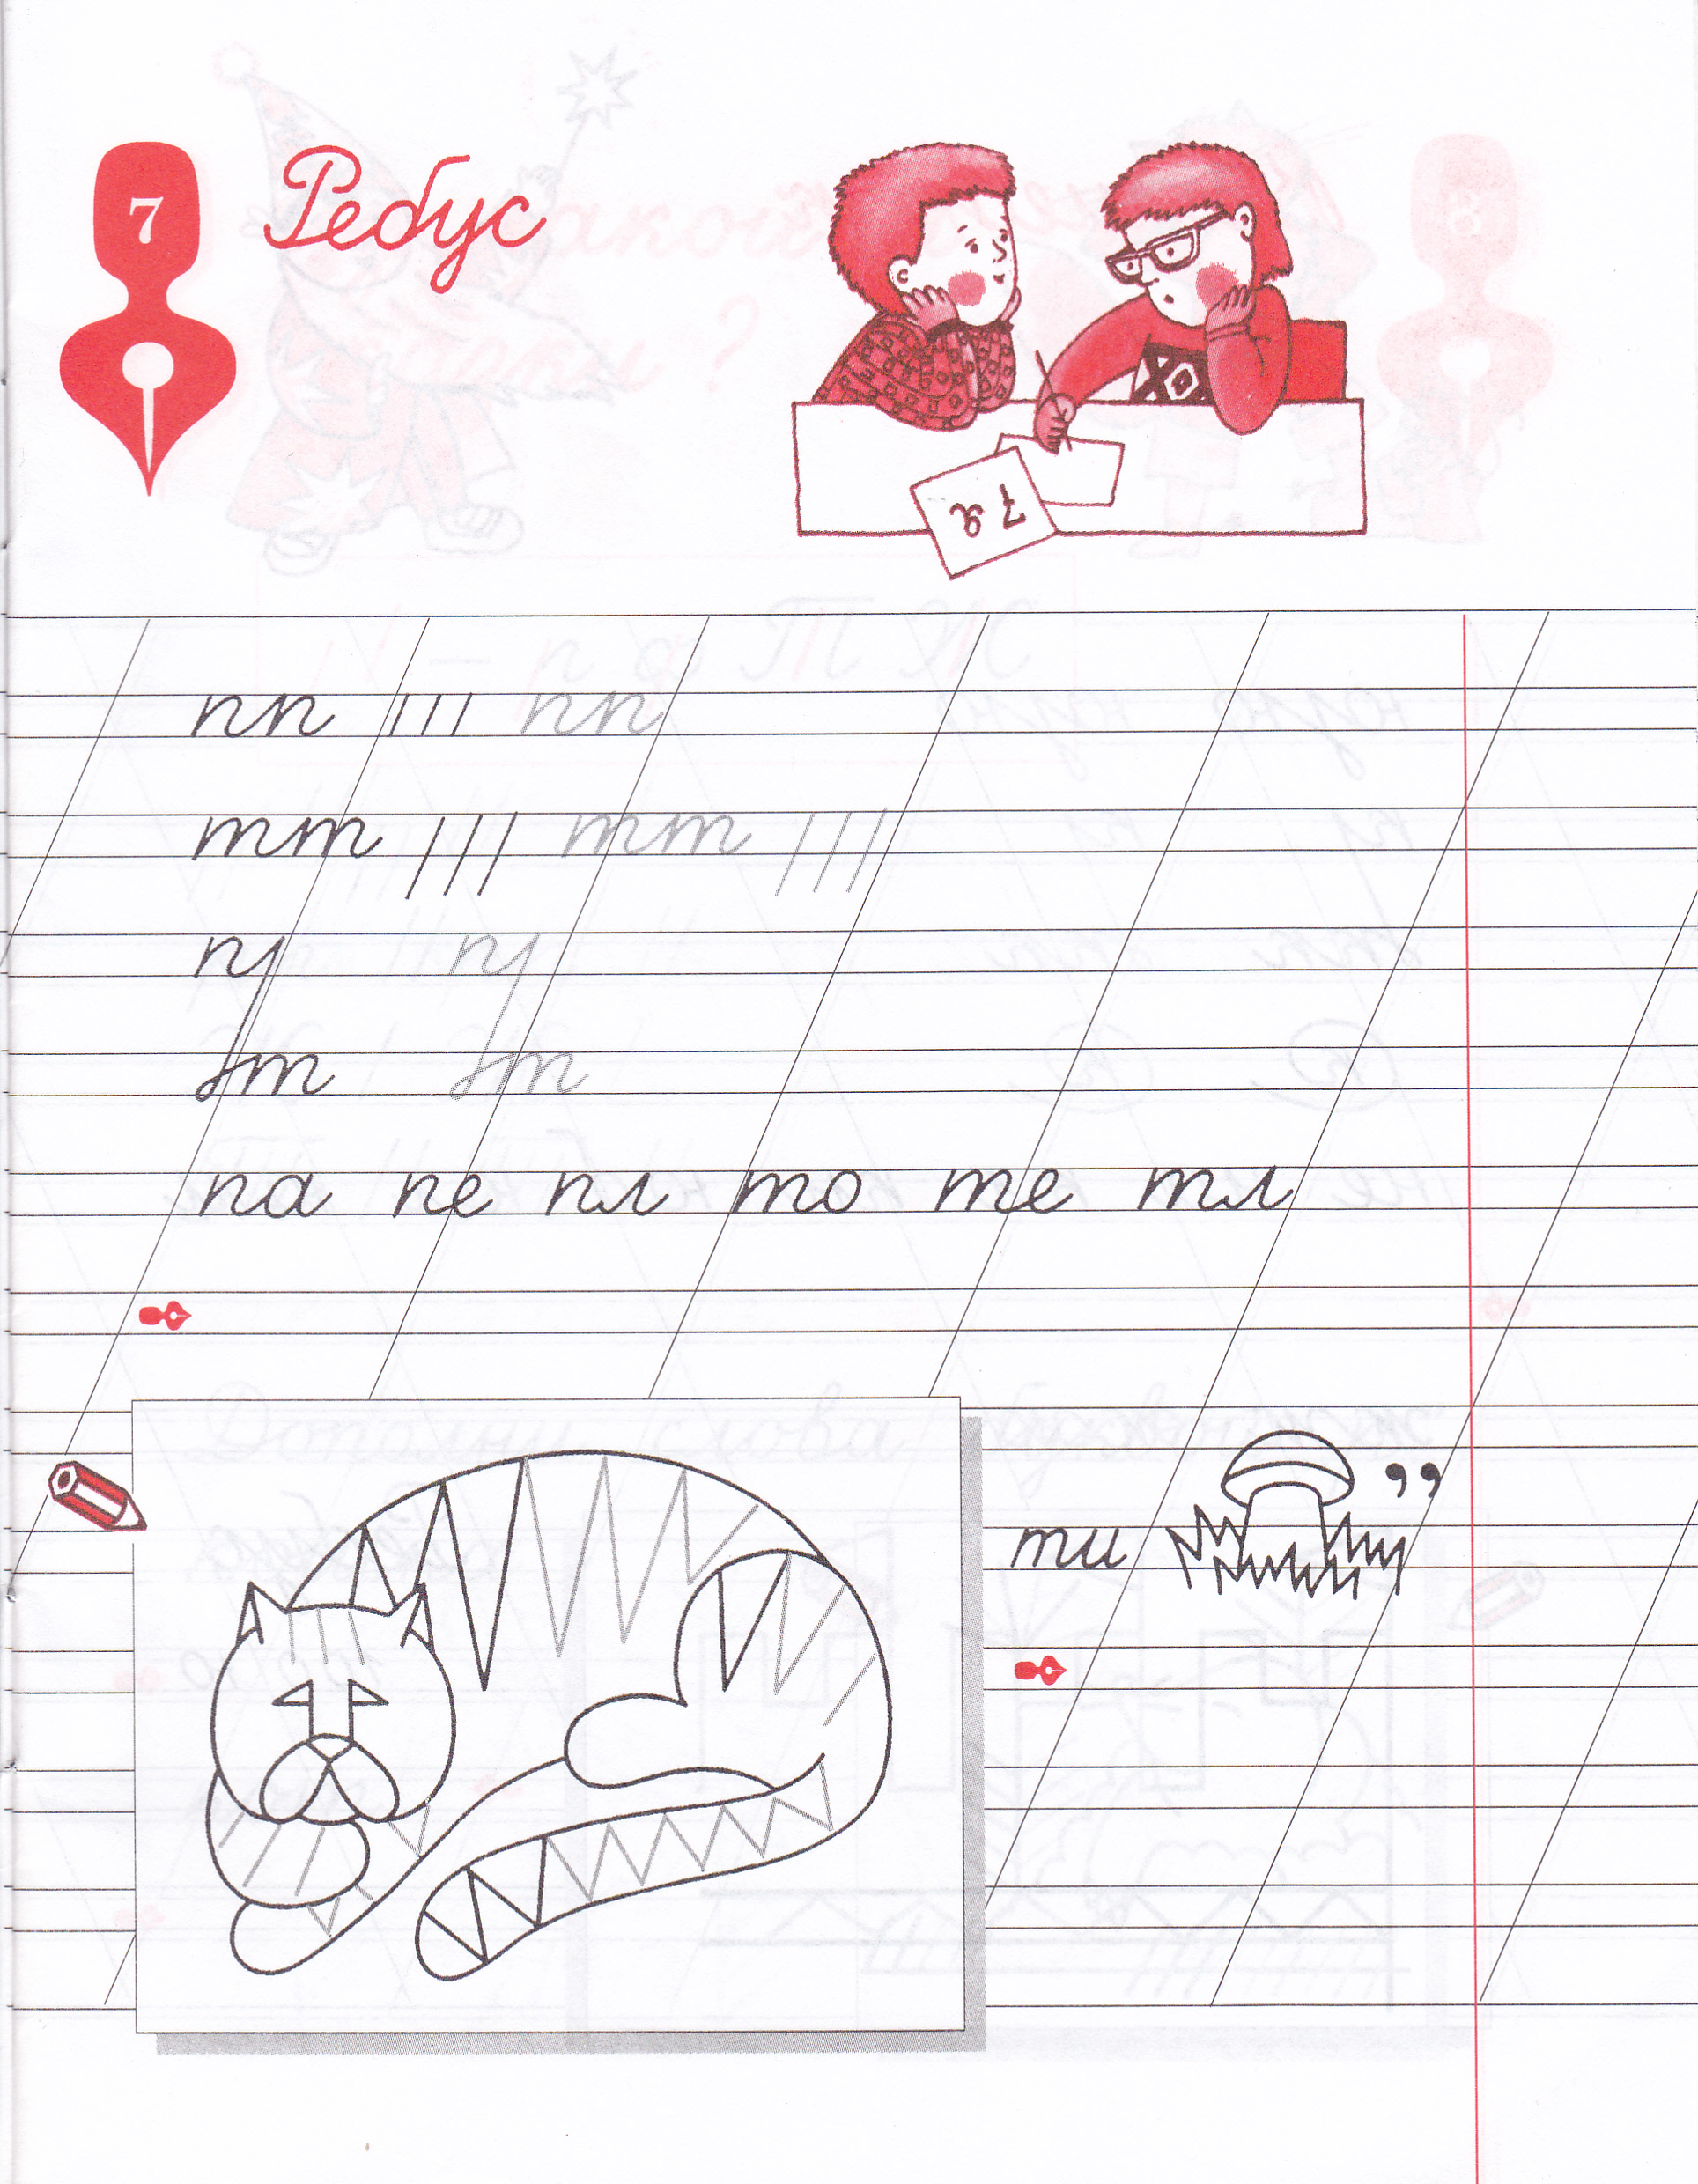 7
Ребус
7 я
пп пп
тт тт
п п
т т
па пе пл то те тл
ти ,,